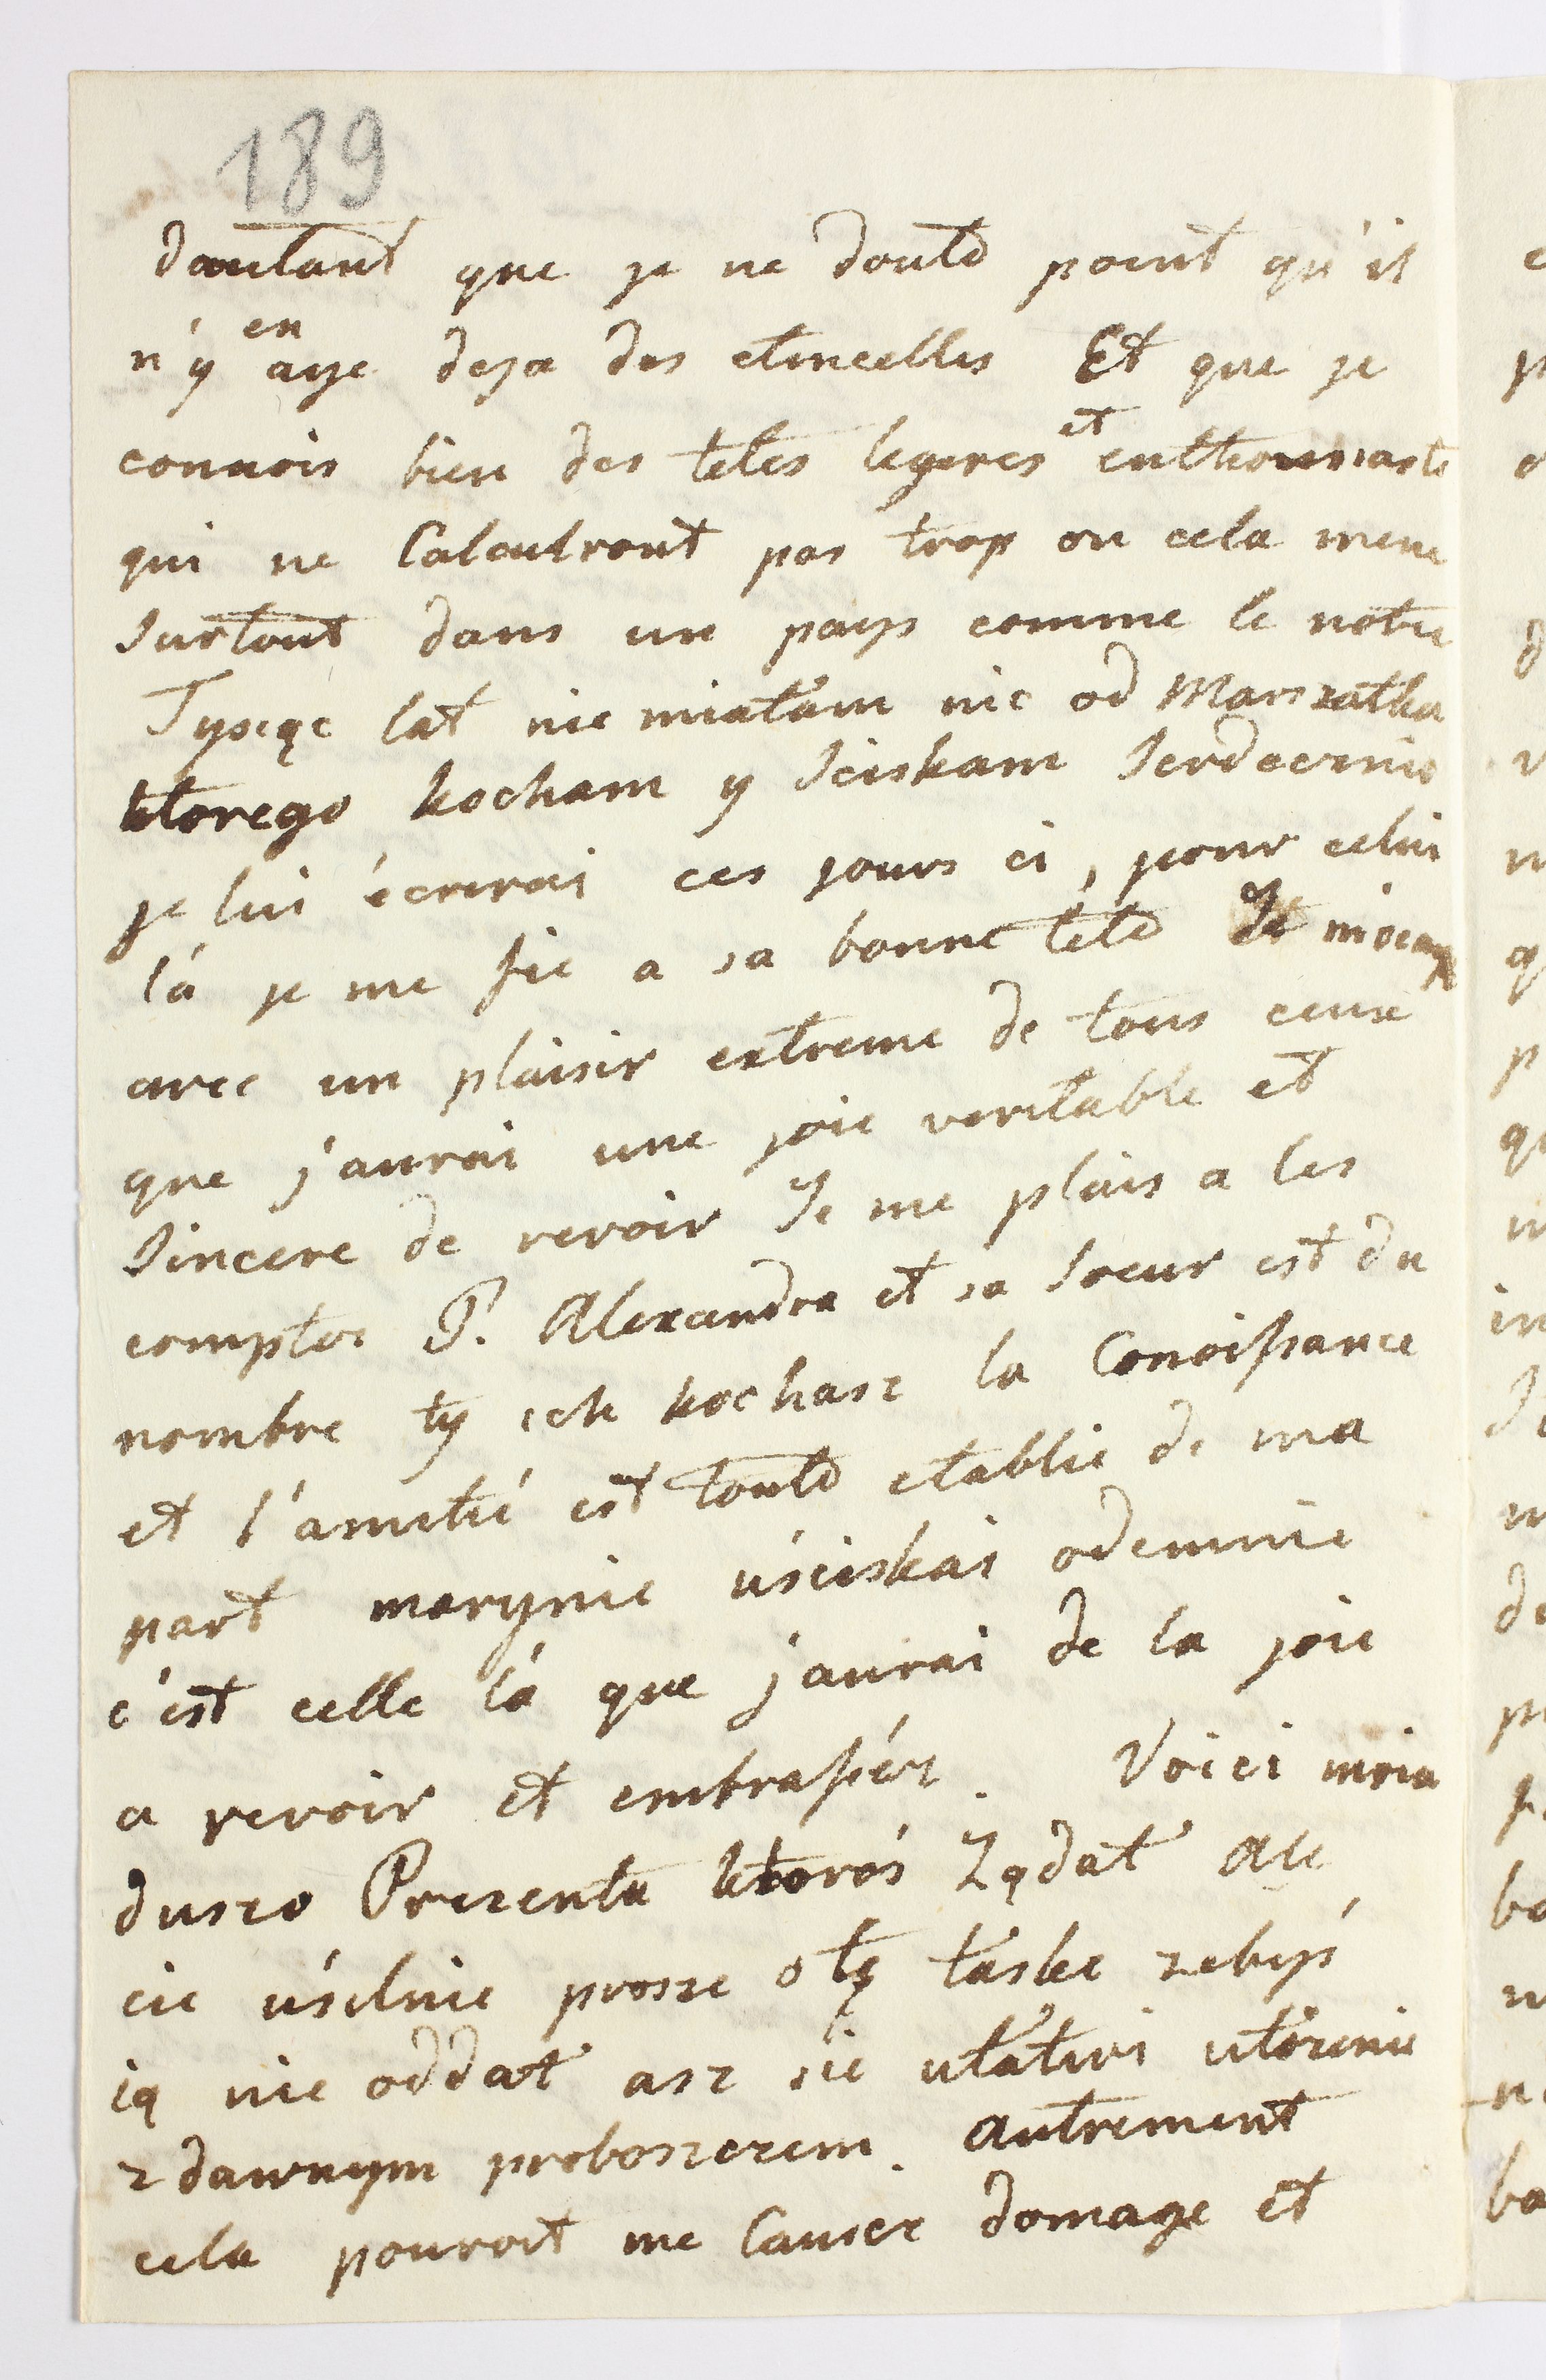 189
dautant que je ne doute point qu'il
en
n'y aye deja des etincelles Et que je
et
connois bien des tetes legeres enthousiaste
qui ne Calculront pas trop ou cela mene
surtout dans un pays comme le notre
Tysęąc lat nie miałam nic od Marszałka
ktorego kocham y sciskam serdecznie
je lui écrerai ces jours ci, pour celui
là je me fie a sa bonne tete Je
avec un plaisir extreme de tous ceux
que j'aurai une joie veritable et
sincere de revoir Je me plais a les
compter P. Alexandra et sa soeur est du
nombre ty ich kochasz la Conoissance
et l'amitié est toute etablie de ma
part marynie uściskai odemnie
c'est celle là que j'aurai de la joie
a revoir et embrassér. Voici moia
duszo Prezenta ktoroś Ządał ale
cie uśilnie prosze o tę łáske zebyś
ią nie oddał asz sie ułatwi ułożenie
z dawnym proboszczem. autrement
cela pouroit me Causer domage et